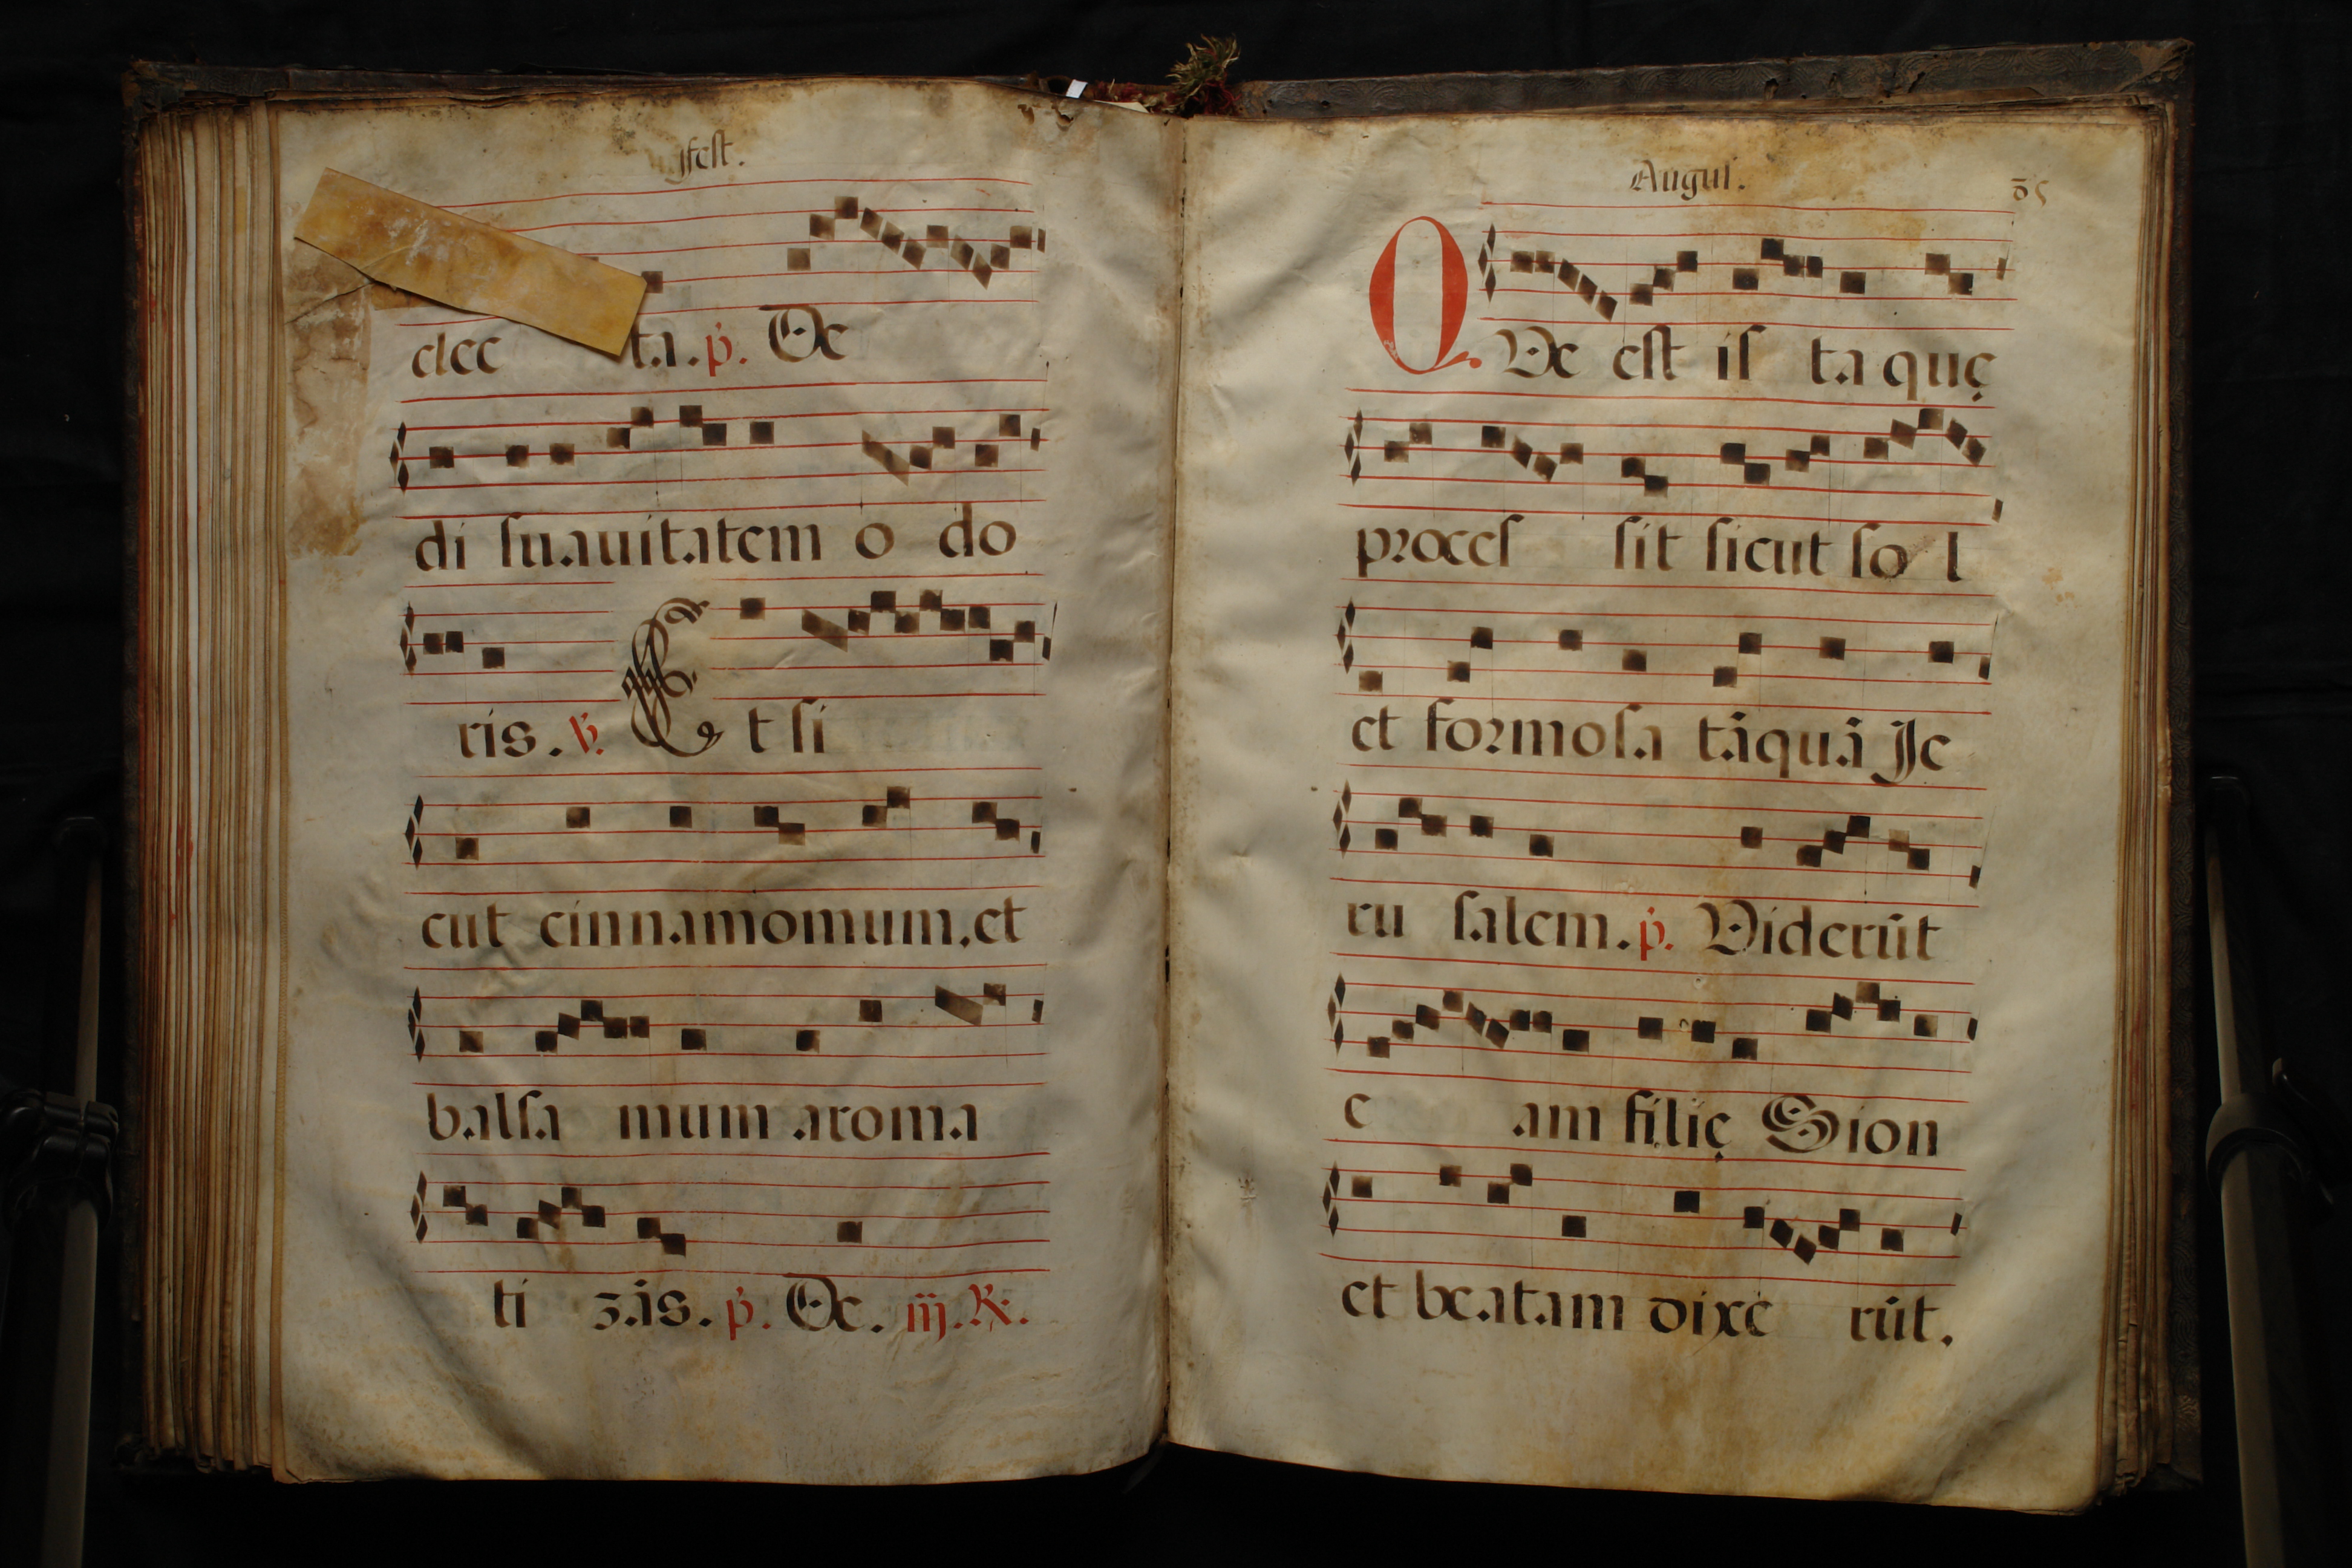 festa.
elec ta. p. De
di suauitatem o do
ris. V. Et si
cut cinnamomum, et
balsa mum aroma
ti zās. p. De. iij. R.
Augus.
QVe est is ta quę
proces sit sicut so l
et formosa tāquā Je
ru salem. p. Viderūt
e am filię Sion
et beatam dixe rūt.